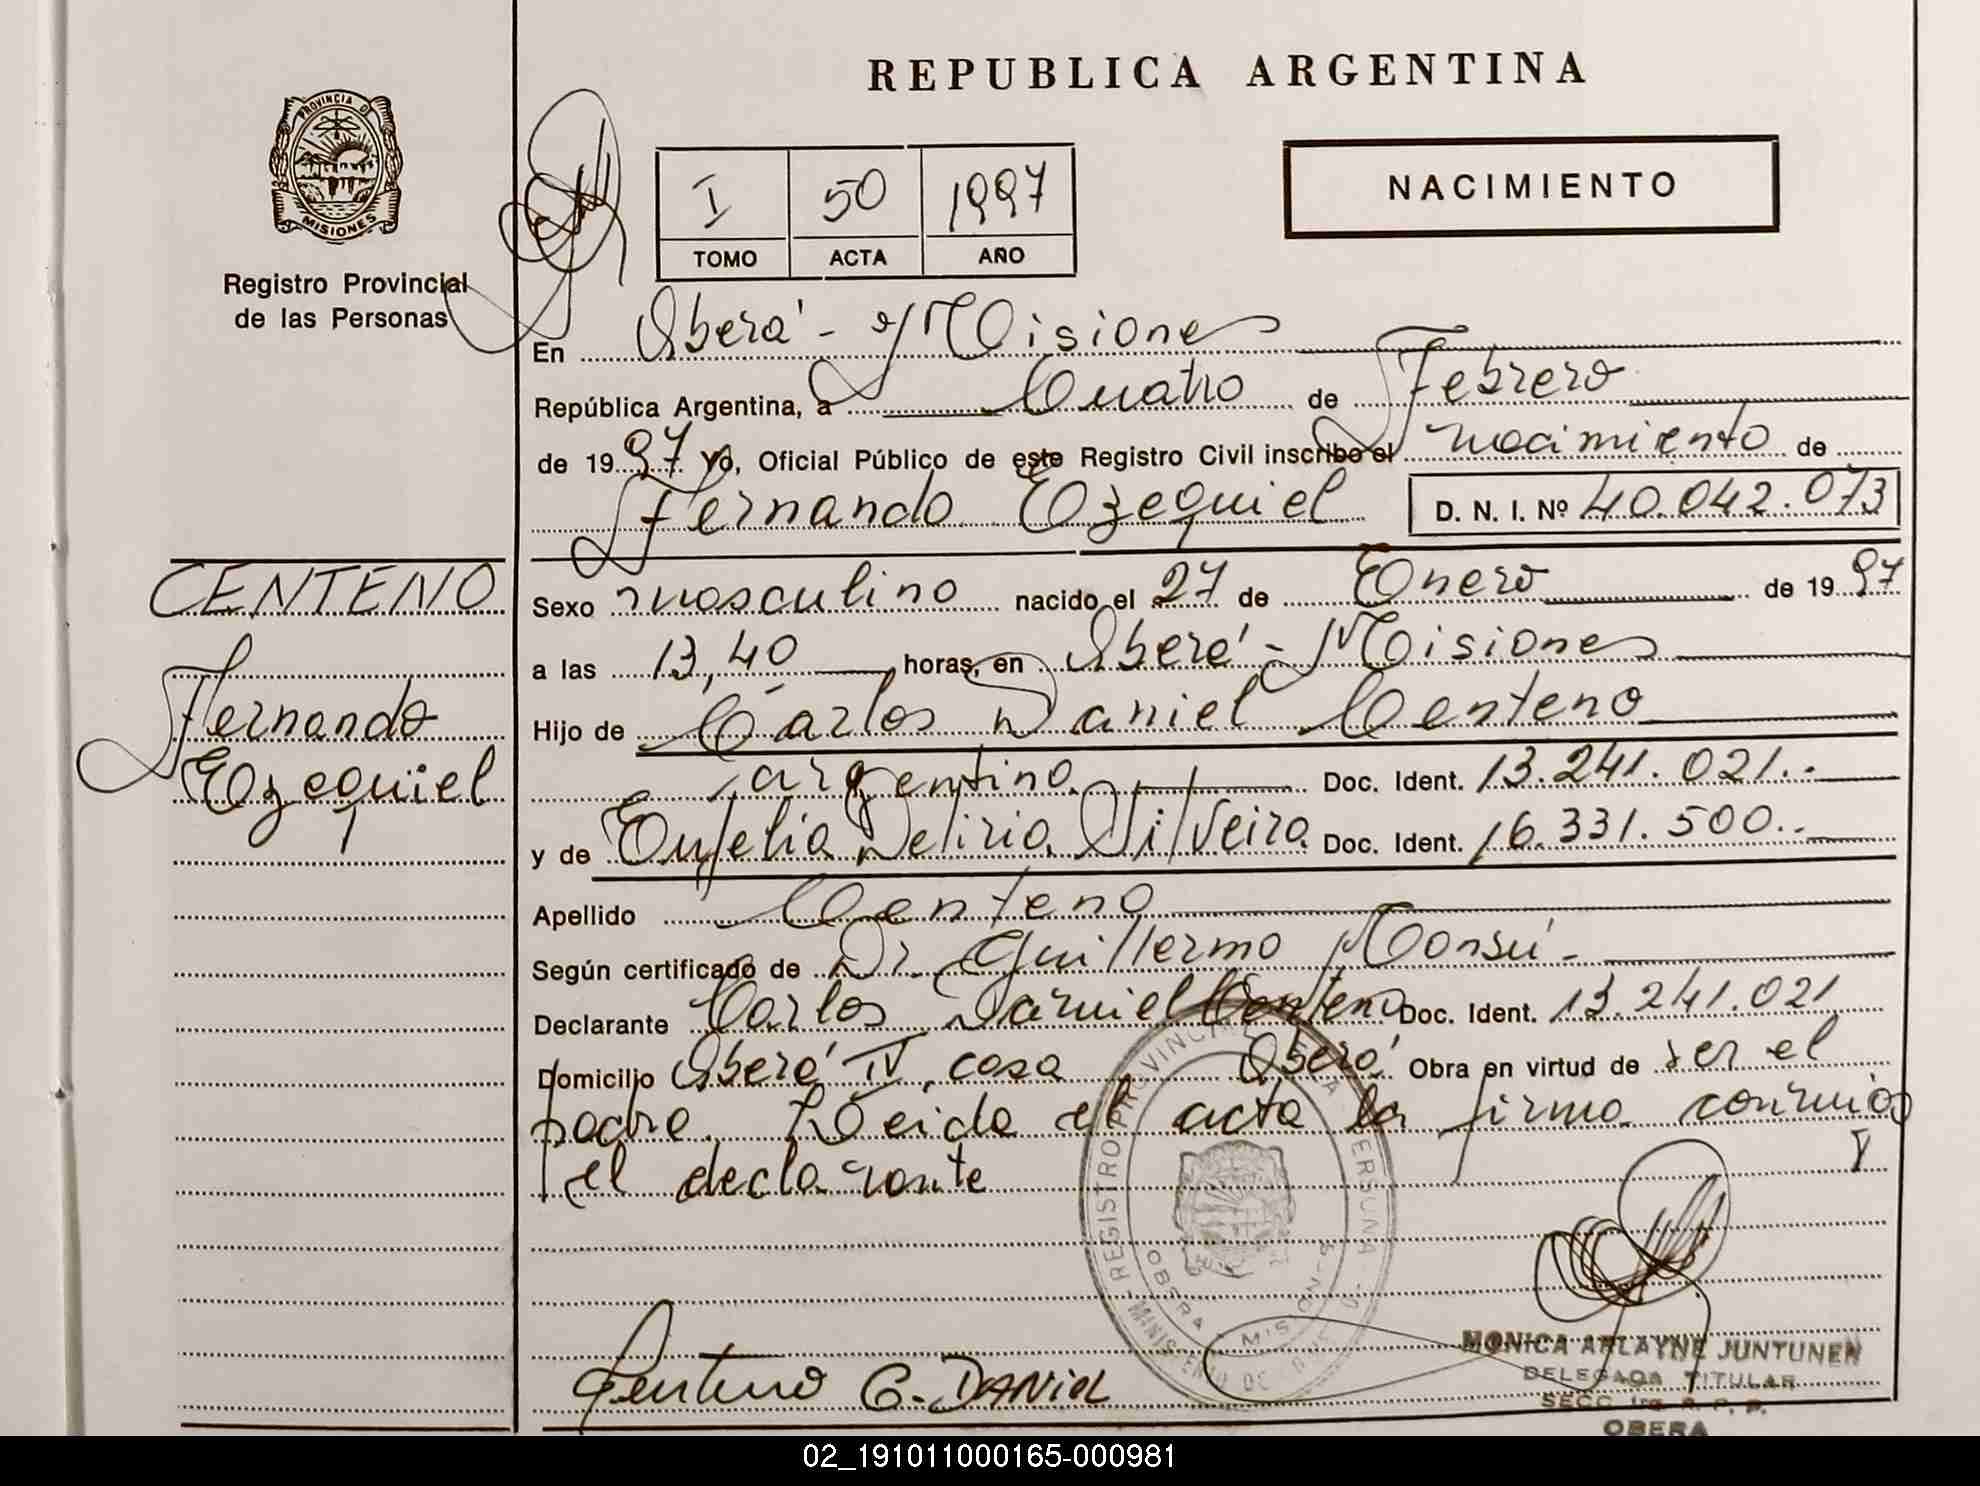 REPUBLICA ARGENTINA
PROVINCIA DE MISIONES
Registro Provincial
de las Personas
I 50 1997
TOMO ACTA AÑO
NACIMIENTO
En Oberá - Misiones
República Argentina, a Cuatro de Febrero
de 1997 yo, Oficial Público de este Registro Civil inscribo el nacimiento de
Fernando Ezequiel D. N. I. Nº 40.042.073
CENTENO
Fernando
Ezequiel
Sexo masculino nacido el 27 de Enero de 1997
a las 13,40 horas, en Oberá - Misiones
Hijo de Carlos Daniel Centeno
argentino Doc. Ident. 13.241.021.-
y de Eufelia Deliria Silveira Doc. Ident. 16.331.500.-
Apellido Centeno
Según certificado de Dr. Guillermo Monsú -
Declarante Carlos Daniel Centeno Doc. Ident. 13.241.021
Domicilio Oberá IV, casa Oberá Obra en virtud de ser el
padre. Leida el acta la firma conmigo
el declarante
REGISTRO PROVINCIAL
OBERA MISIONES
Centeno C. DANIEL
MONICA ARLAYNE JUNTUNEN
DELEGADA TITULAR
SECC. 1ra R. P. P.
OBERA
02_191011000165-000981